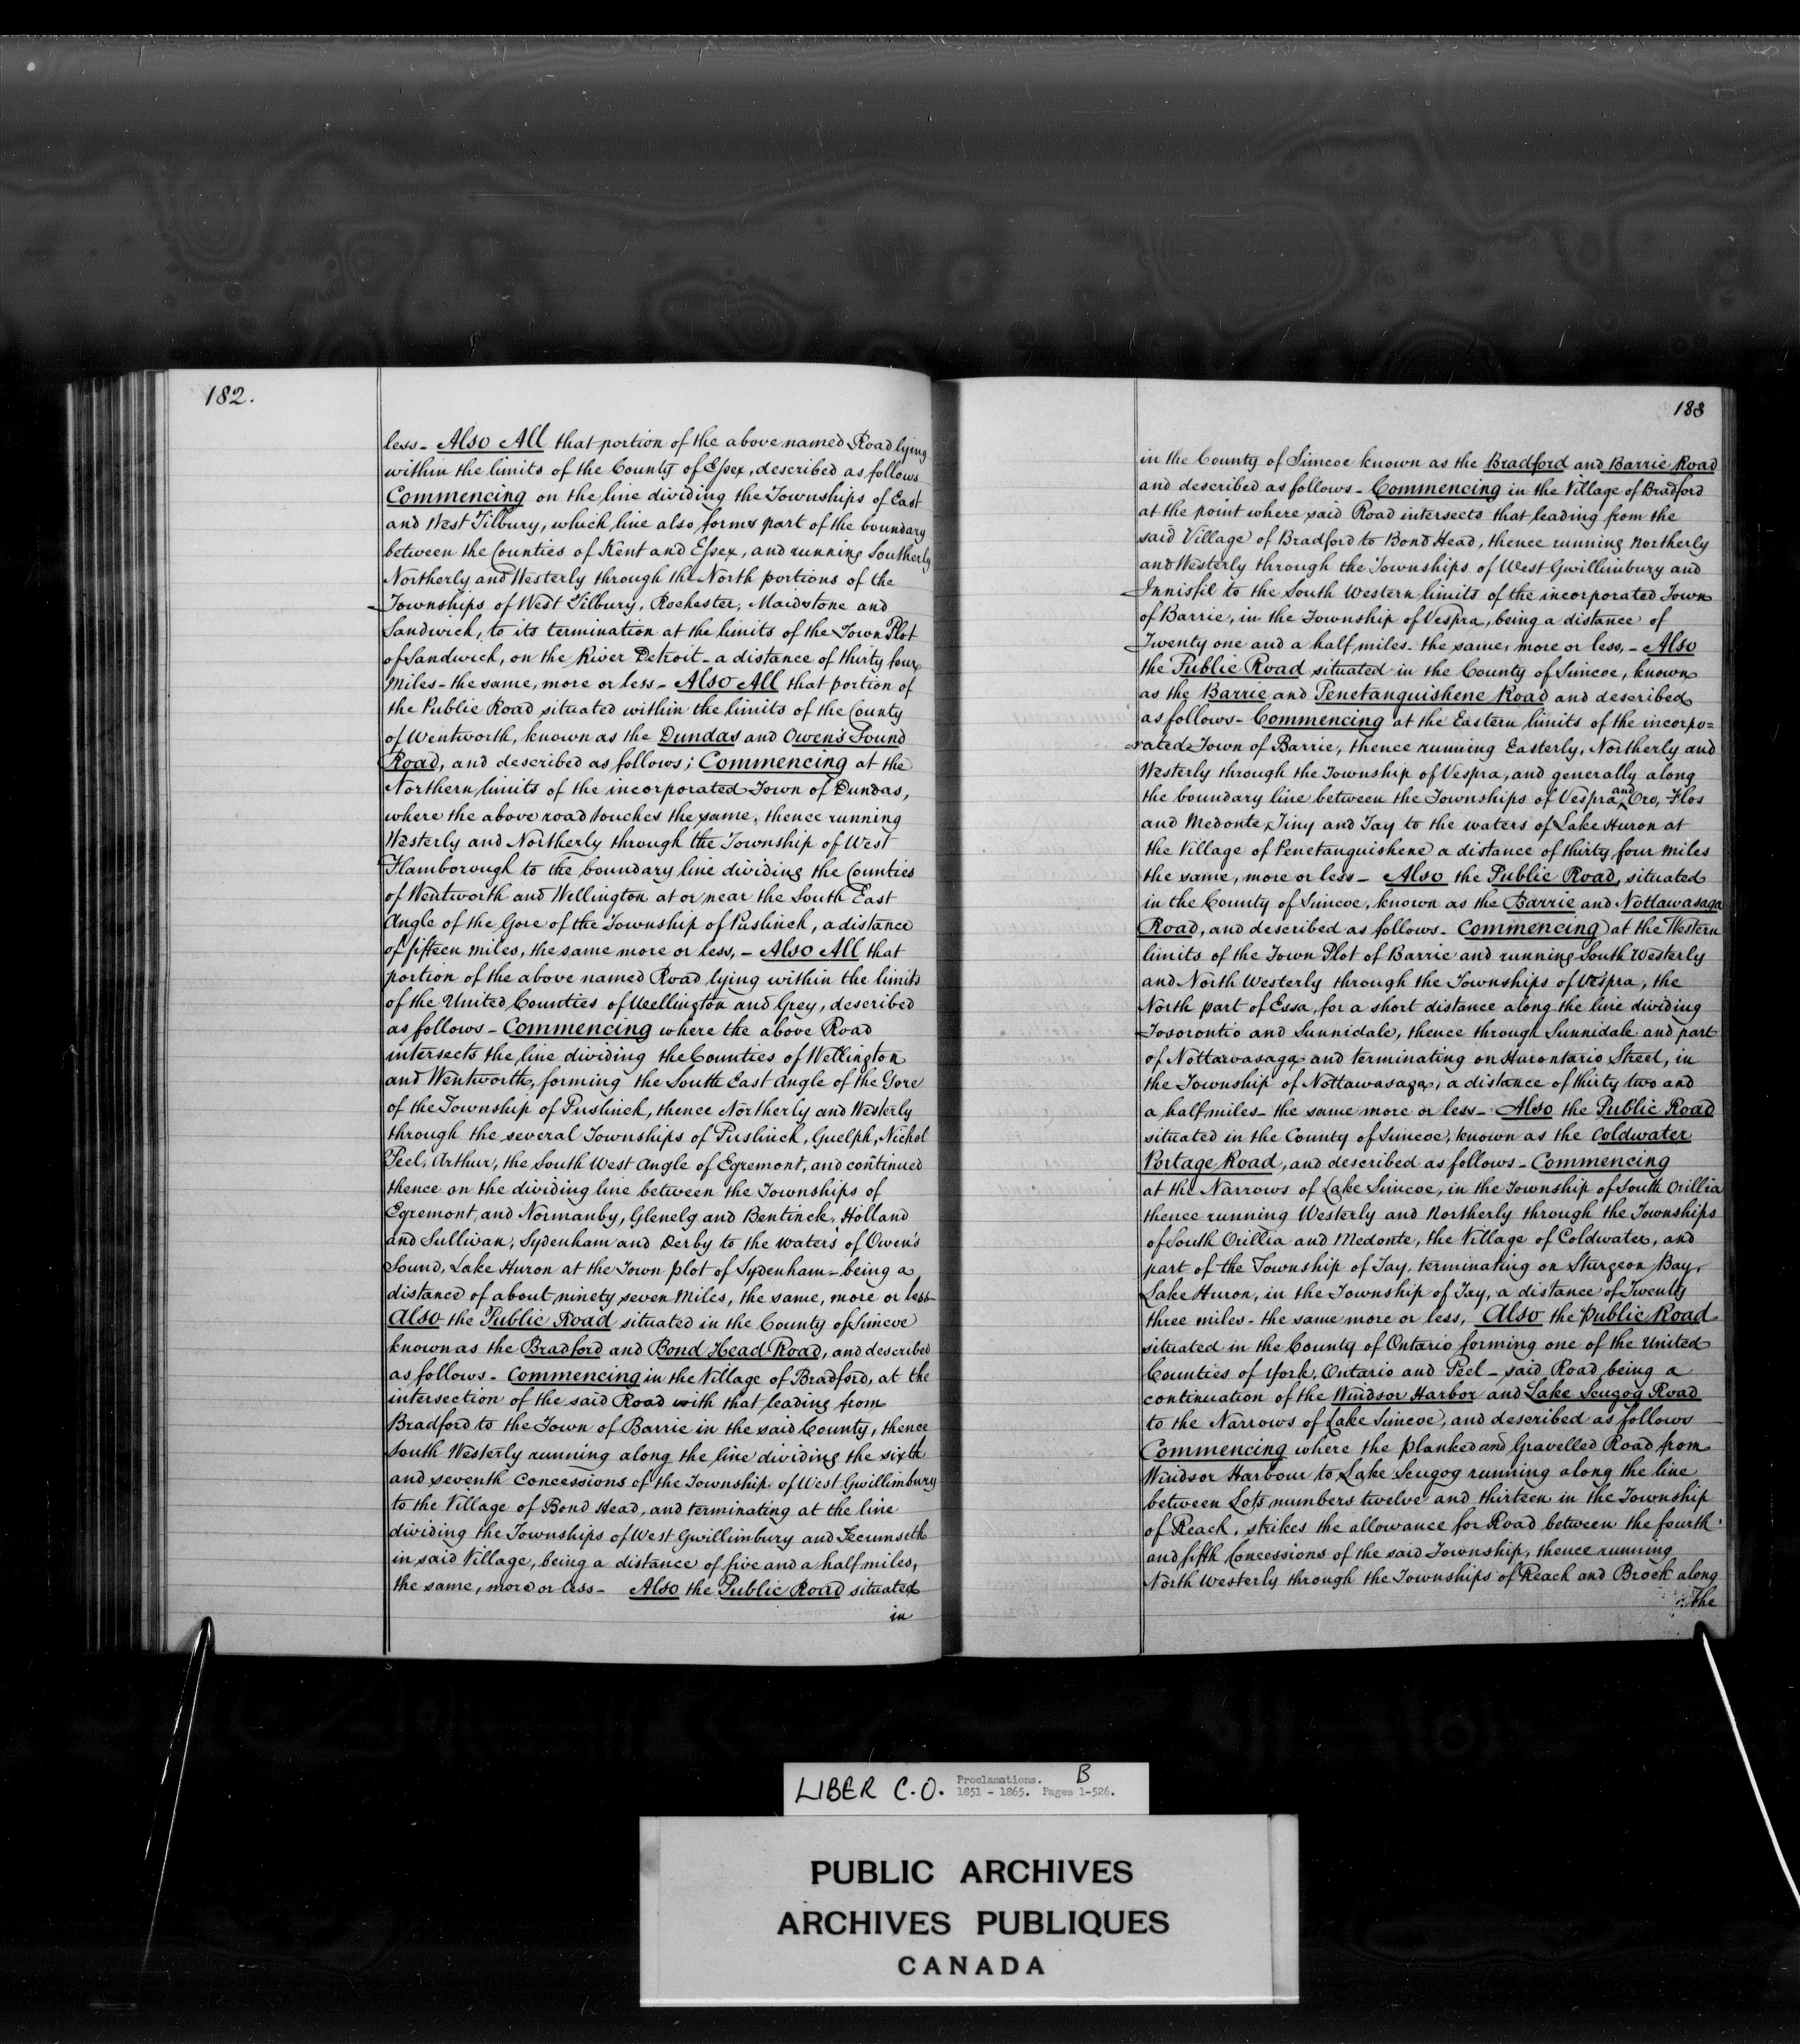 182.
less - Also All that portion of the above named Road lying
within the limits of the County of Essex, described as follows
Commencing on the line dividing the Townships of East
and West Tilbury, which line also forms part of the boundary
between the Counties of Kent and Essex, and running Southerly
Northerly and Westerly through the North portions of the
Townships of West Tilbury, Rochester, Maidstone and
Sandwich, to its termination at the limits of the Town Plot
of Sandwich, on the River Detroit - a distance of thirty four
Miles - the same, more or less - Also All that portion of
the Public Road situated within the limits of the County
of Wentworth, known as the Dundas and Owen's Sound
Road, and described as follows; Commencing at the
Northern limits of the incorporated Town of Dundas,
where the above road touches the same, thence running
Westerly and Northerly through the Township of West
Flamborough to the boundary line dividing the Counties
of Wentworth and Wellington at or near the South East
Angle of the Gore of the Township of Puslinch, a distance
of fifteen miles, the same more or less, - Also All that
portion of the above named Road lying within the limits
of the United Counties of Wellington and Grey, described
as follows - Commencing where the above Road
intersects the line dividing the Counties of Wellington
and Wentworth, forming the South East Angle of the Gore
of the Township of Puslinch, thence Northerly and Westerly
through the several Townships of Puslinch, Guelph, Nichol
Peel, Arthur, the South West Angle of Egremont, and continued
thence on the dividing line between the Townships of
Egremont, and Normanby, Glenelg and Bentinck, Holland
and Sullivan, Sydenham and Derby to the waters of Owen's
Sound, Lake Huron at the Town plot of Sydenham - being a
distance of about ninety seven Miles, the same, more or less -
Also the Public Road situated in the County of Simcoe
known as the Bradford and Bond Head Road, and described
as follows - Commencing in the Village of Bradford, at the
intersection of the said Road with that leading from
Bradford to the Town of Barrie in the said County, thence
South Westerly running along the line dividing the sixth
and seventh Concessions of the Township of West Gwillimbury
to the Village of Bond Head, and terminating at the line
dividing the Townships of West Gwillimbury and Tecumseth
in said Village, being a distance of five and a half miles,
the same, more or less - Also the Public Road situated
in
183
in the County of Simcoe known as the Bradford and Barrie Road
and described as follows - Commencing in the Village of Bradford
at the point where said Road intersects that leading from the
said Village of Bradford to Bond Head, thence running Northerly
and Westerly through the Townships of West Gwillimbury and
Innisfil to the South Western limits of the incorporated Town
of Barrie, in the Township of Vespra, being a distance of
Twenty one and a half miles - the same, more or less, - Also
the Public Road situated in the County of Simcoe, known
as the Barrie and Penetanguishene Road and described
as follows - Commencing at the Eastern limits of the incorpo=
=rated Town of Barrie, thence running Easterly, Northerly and
Westerly through the Township of Vespra, and generally along
the boundary line between the Townships of Vespra and Oro, Flos
and Medonte, Tiny and Tay to the waters of Lake Huron at
the Village of Penetanguishene a distance of thirty four miles
the same, more or less - Also the Public Road, situated
in the County of Simcoe, known as the Barrie and Nottawasaga
Road, and described as follows - Commencing at the Western
limits of the Town Plot of Barrie and running South Westerly
and North Westerly through the Townships of Vespra, the
North part of Essa, for a short distance along the line dividing
Tosorontio and Sunnidale, thence through Sunnidale and part
of Nottawasaga and terminating on Hurontario Street, in
the Township of Nottawasaga, a distance of thirty two and
a half miles - the same more or less - Also the Public Road
situated in the County of Simcoe, known as the Coldwater
Portage Road, and described as follows - Commencing
at the Narrows of Lake Simcoe, in the Township of South Orillia
thence running Westerly and Northerly through the Townships
of South Orillia and Medonte, the Village of Coldwater, and
part of the Township of Tay, terminating on Sturgeon Bay,
Lake Huron, in the Township of Tay, a distance of Twenty
three miles - the same more or less, Also the Public Road
situated in the County of Ontario forming one of the United
Counties of York, Ontario and Peel - said Road being a
continuation of the Windsor Harbor and Lake Scugog Road
to the Narrows of Lake Simcoe, and described as follows
Commencing where the planked and Gravelled Road from
Windsor Harbour to Lake Scugog running along the line
between Lots numbers twelve and thirteen in the Township
of Reach, strikes the allowance for Road between the fourth
and fifth Concessions of the said Township, thence running
North Westerly through the Townships of Reach and Brock along
the
LIBER C.O. Proclamations. B
1851 - 1865. Pages 1-526.
PUBLIC ARCHIVES
ARCHIVES PUBLIQUES
CANADA